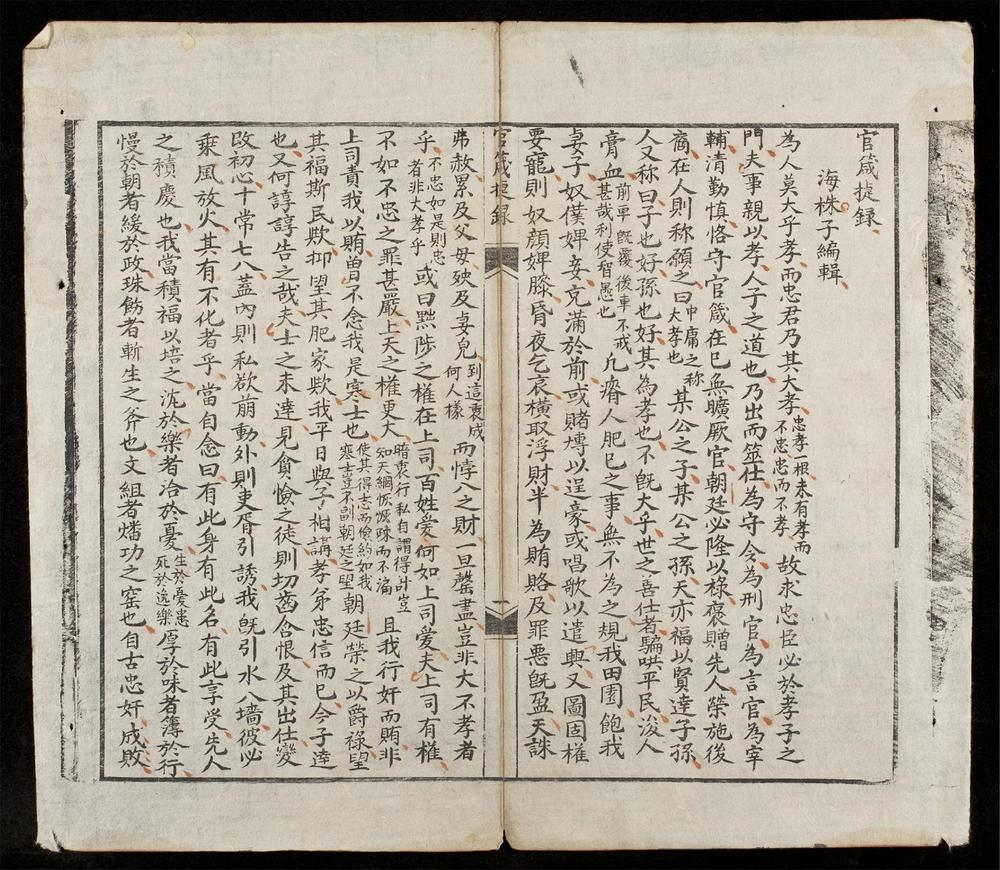 官箴捷録
海株子編輯
為人莫大乎孝而忠君乃其大孝忠孝一根未有孝而不忠忠而不孝故求忠臣必於孝子之
門夫事親以孝人子之道也乃出而筮仕為守令為刑官為言官為宰
輔清勤慎恪守官箴在已無曠厥官朝廷必隆以祿褒贈先人榮施後
裔在人則称願之曰中庸之称大孝也某公之子某公之孫天亦福以賢達子孫
人又称曰子也好孫也好其為孝也不既大乎世之善仕者騙哄平民浚人
膏血前車既覆後車不戒甚哉利使智愚也凡瘠人肥已之事無不為之規我田園飽我
妻子奴僕婢妾充滿於前或賭博以逞豪或唱歌以遣興又圖固權
要寵則奴顏婢膝昏夜乞哀橫取浮財半為賄賂及罪惡既盈天誅
官箴捷録
一
弗赦累及父母殃及妻兒到這裏成何人様而悖入之財一旦罄盡豈非大不孝者
乎不忠如是則忠者非大孝乎或曰黜陟之權在上司百姓愛何如上司愛夫上司有權
不如不忠之罪甚嚴上天之権更大暗裏行私自謂得計豈知天網恢恢疎而不漏且我行奸而賄非
上司責我以賄曽不念我是寒士也使其得志而儉約如我寒士豈不副朝廷之望朝廷榮之以爵祿望
其福斯民欺抑望其肥家欺我平日與子相講孝弟忠信而已今子達
也又何諄諄告之哉夫士之未達見貪憸之徒則切齒含恨及其出仕變
改初心十常七八蓋内則私欲萠動外則吏胥引誘我既引水入墻彼必
乗風放火其有不化者乎當自念曰有此身有此名有此享受先人
之積慶也我當積福以培之沈於樂者洽於憂生於憂患死於逸樂厚於味者簿於行
慢於朝者緩於政珠飾者斬生之斧也文組者燔功之窑也自古忠奸成敗